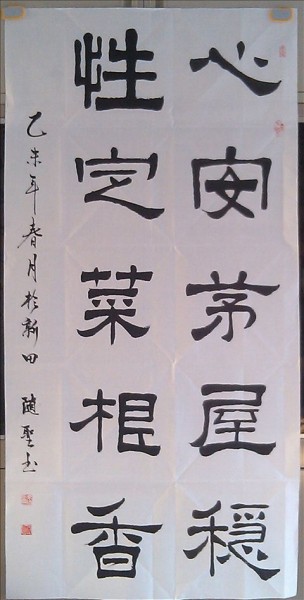 心安茅屋穩
性定菜根香
乙未年春月於新田 隨聖书